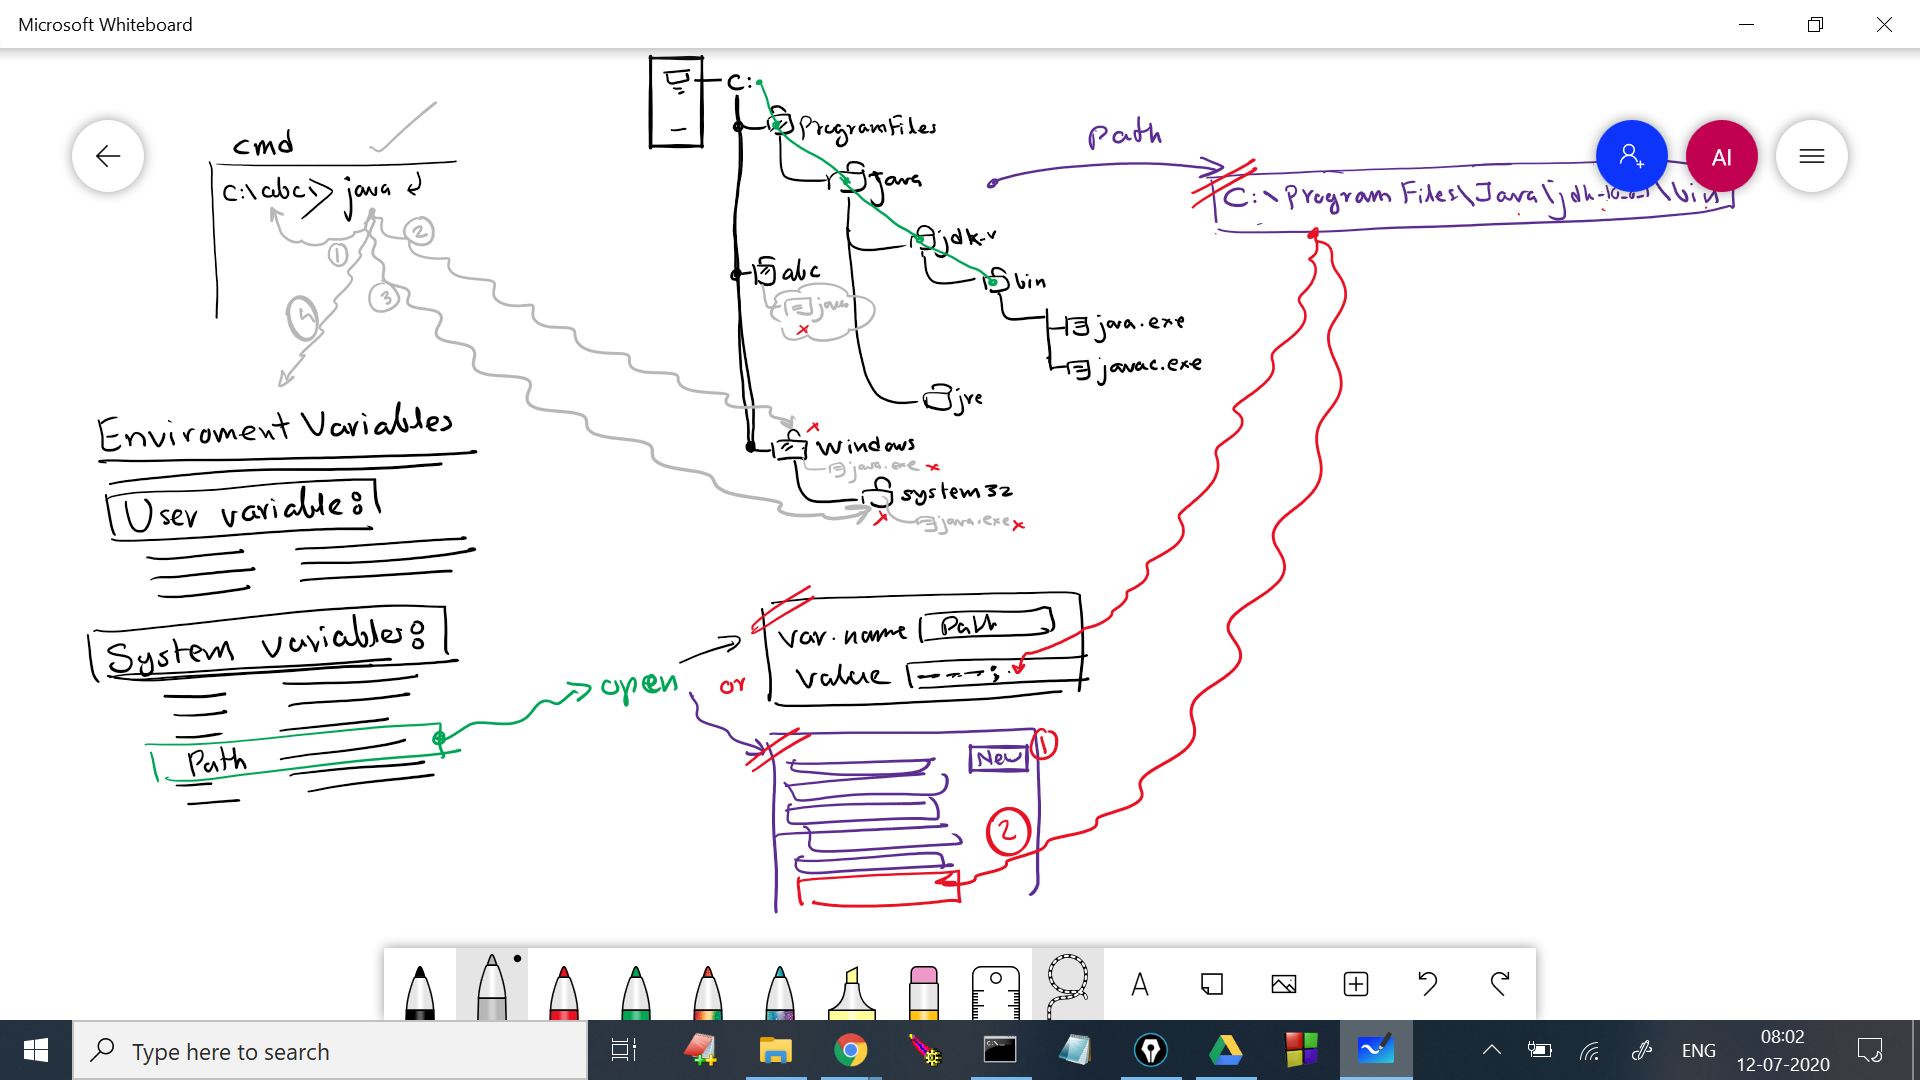 Microsoft Whiteboard
cmd
C:\abc\> java ↲
①
②
③
4
C:
ProgramFiles
Java
jdk-v
bin
java.exe
javac.exe
jre
abc
java
x
Windows
x
java.exe x
system32
x
java.exe x
Path
C:\Program Files\Java\jdk-\bin
AI
Enviroment Variables
User variable:
System variables:
Path
open
or
var.name Path
value ----;.
New
①
②
A
Type here to search
ENG
08:02
12-07-2020